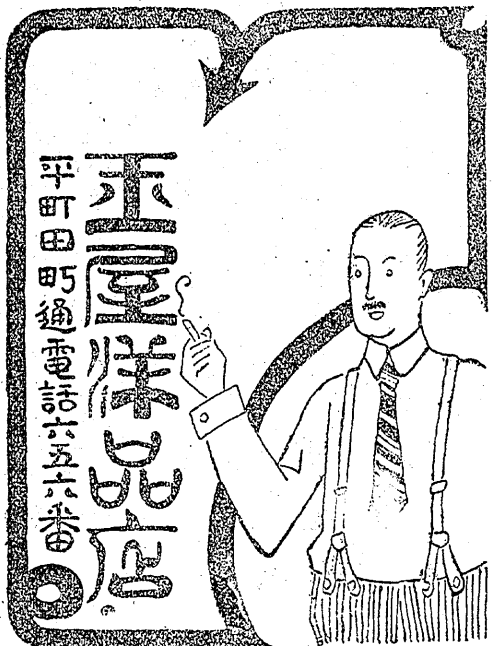 玉屋洋品店
平町田町通電話六五六番